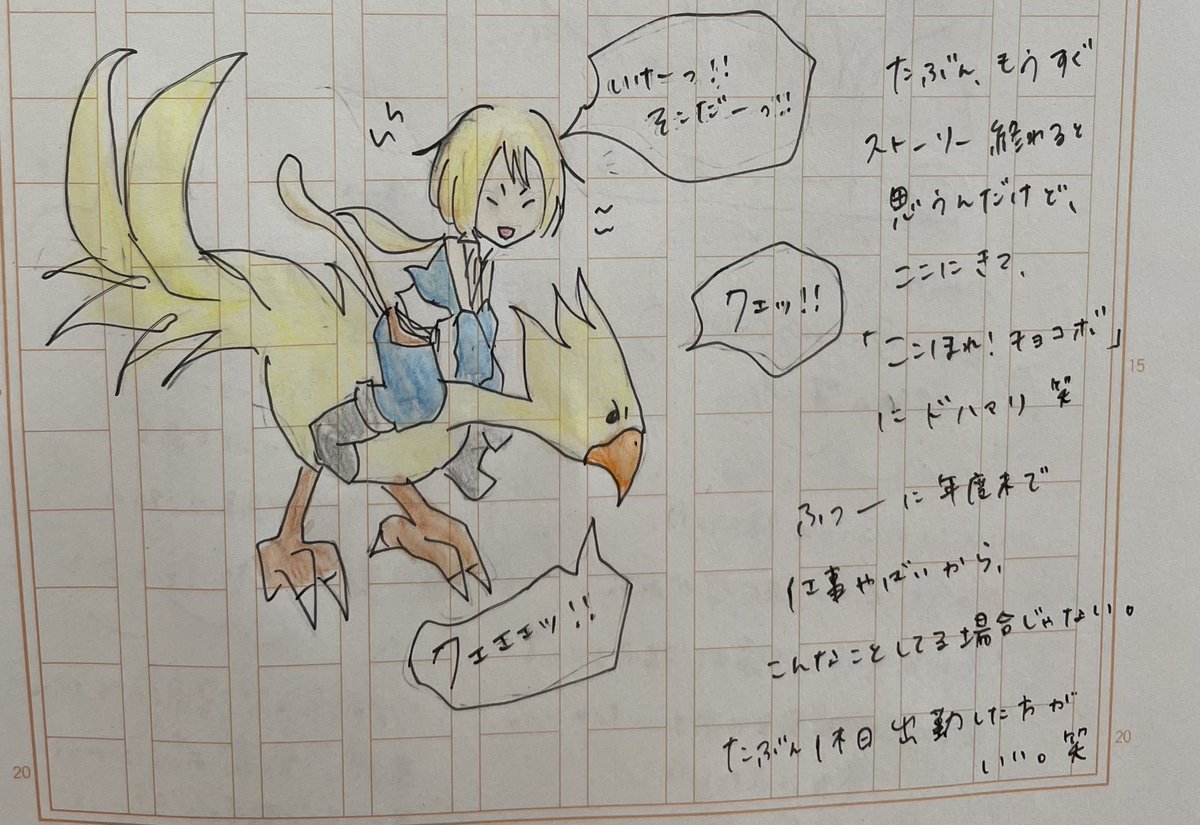 いけーっ!!
そこだーっ!!
クェッ!!
クェェェッ!!
たぶん、もうすぐ
ストーリー終わると
思うんだけど、
ここにきて、
「ここほれ!チョコボ」
にドハマり笑
ふつーに年度末で
仕事やばいから、
こんなことしてる場合じゃない。
たぶん休日出勤した方が
いい。笑
15
20
20